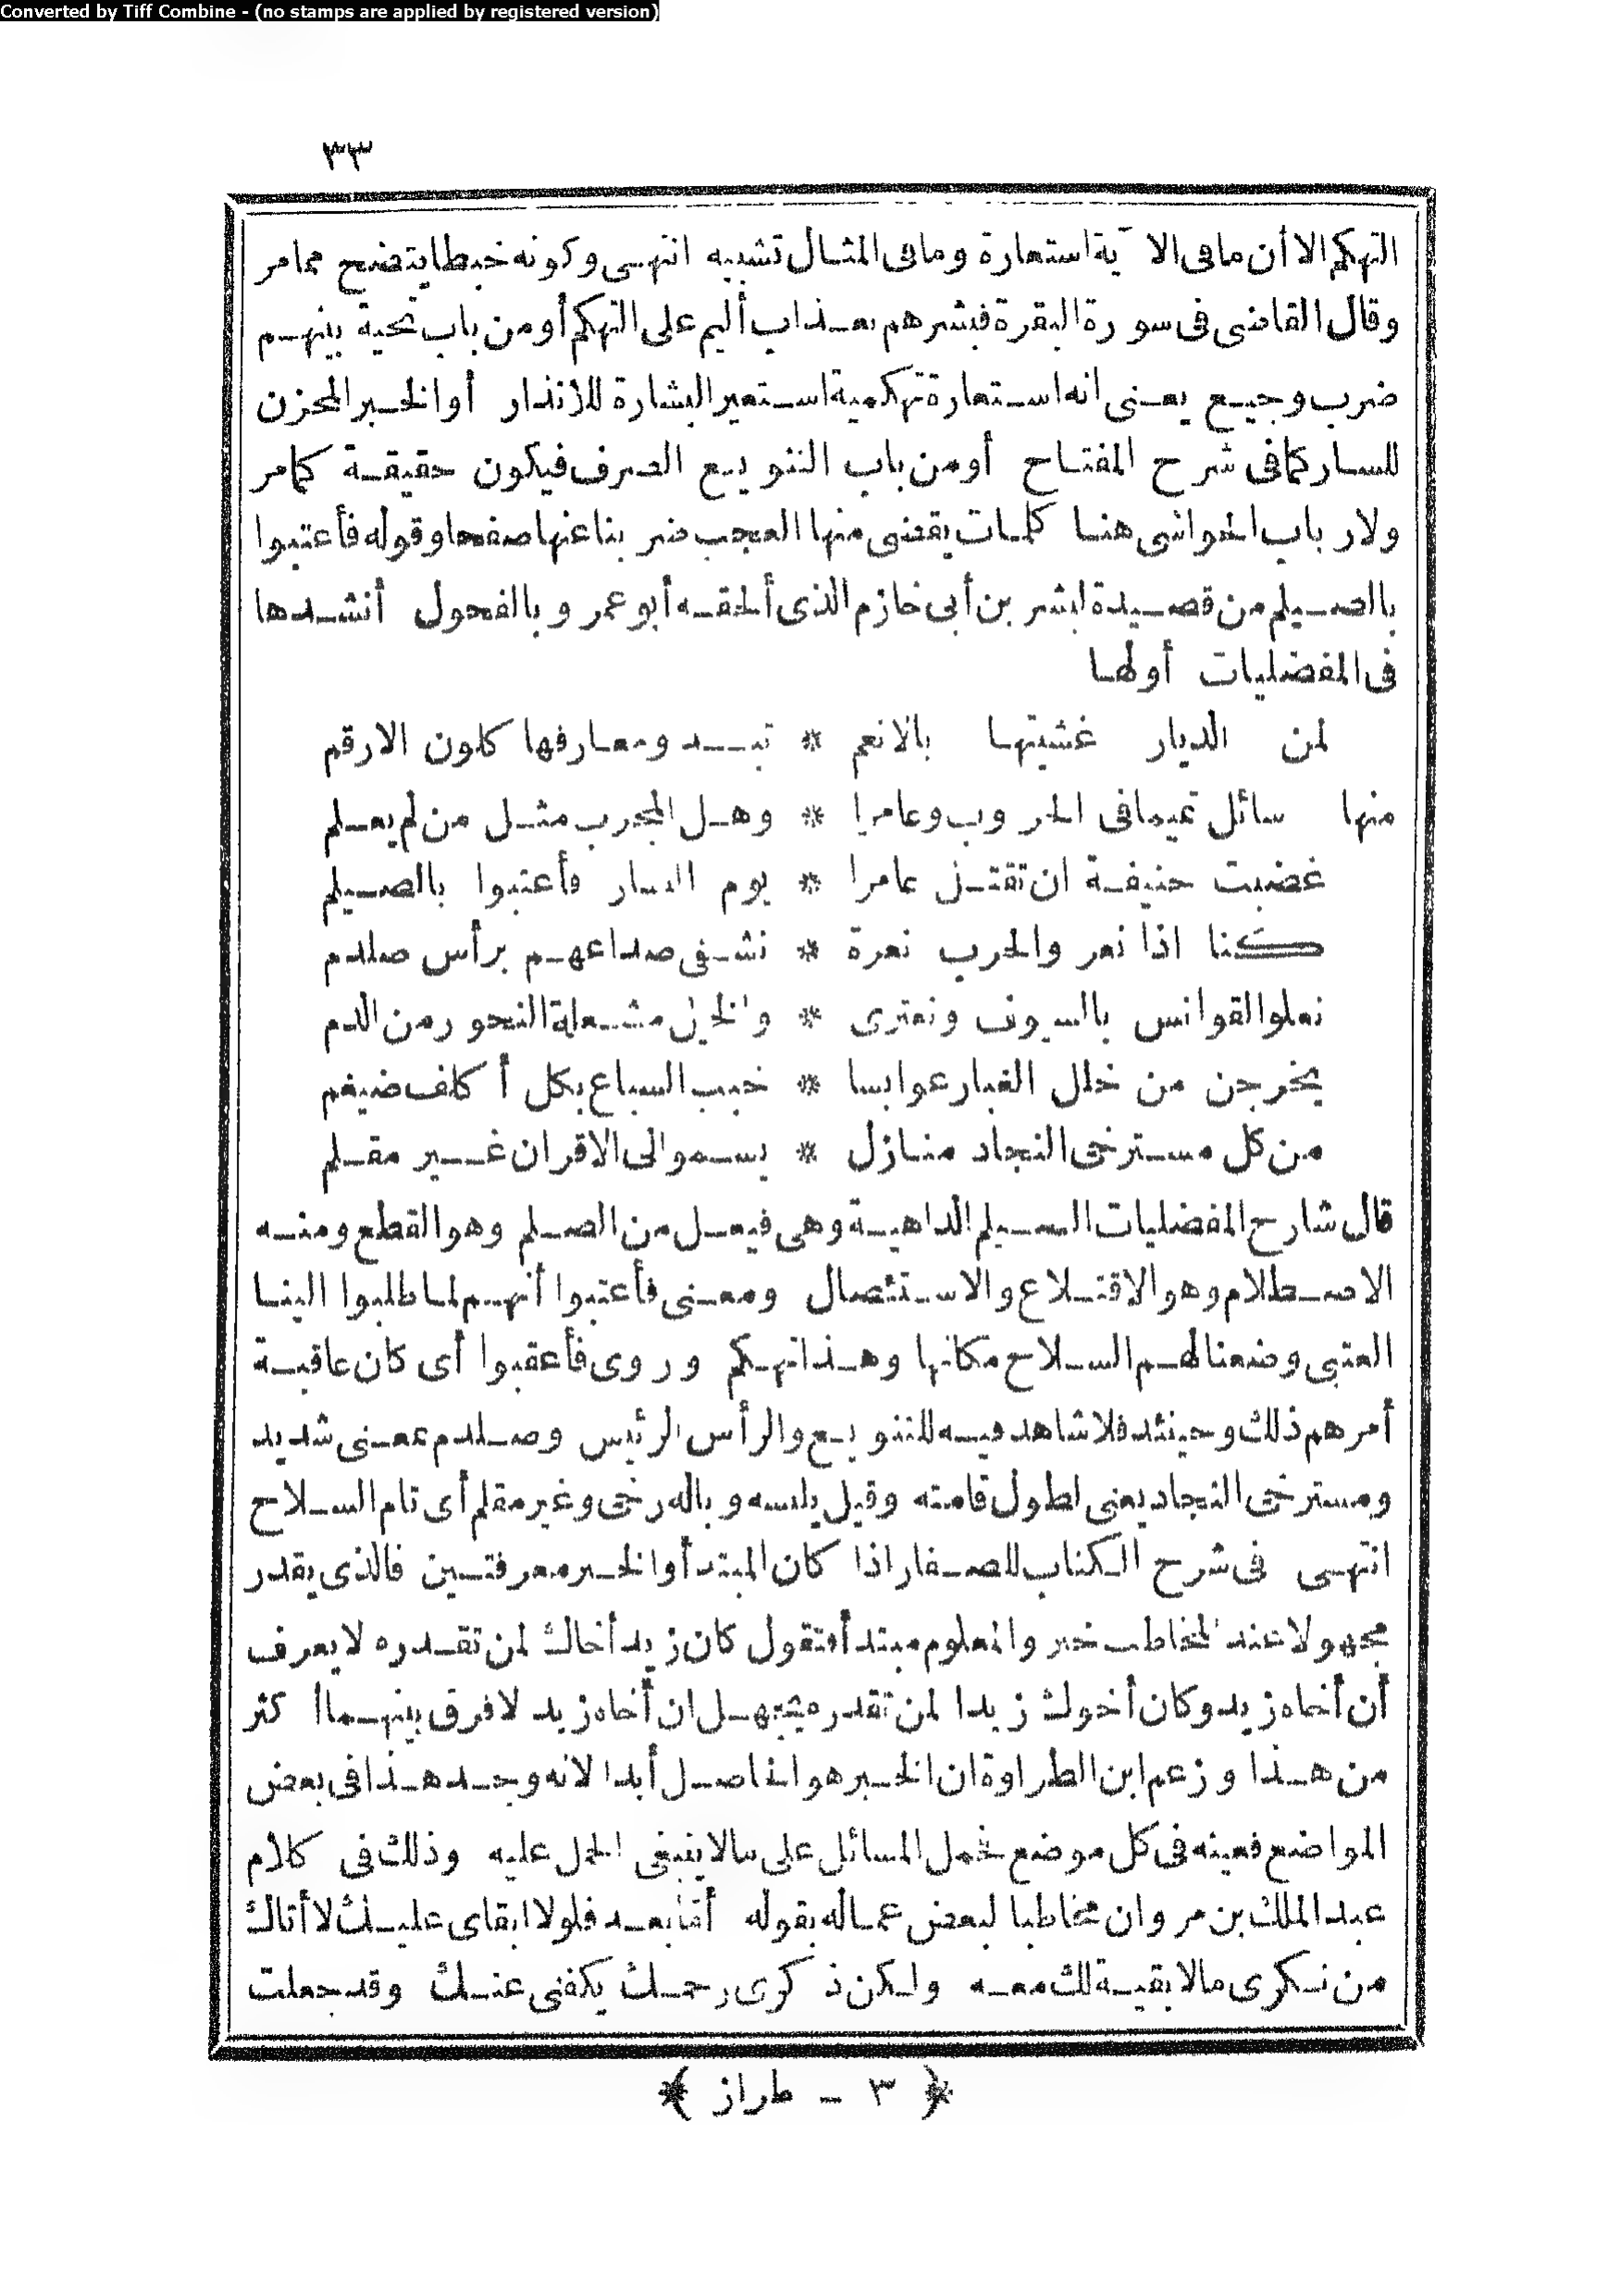 Converted by Tiff Combine - (no stamps are applied by registered version)
٣٣
التهكم الا أن ما فى الآية استعارة وما فى المثال تشبيه انتهى وكونه خبطا يتضح مما مر
وقال القاضى فى سورة البقرة فبشرهم بعذاب أليم على التهكم أو من باب تحية بينهم
ضرب وجيع يعنى انه استعارة تهكمية استعير البشارة للانذار أو الخبر المحزن
للسار كما فى شرح المفتاح أو من باب التنويع الصرف فيكون حقيقة كما مر
ولارباب الحواشى هنا كلمات يقضى منها العجب ضربنا عنها صفحا وقوله فأعتبوا
بالصيلم من قصيدة لبشر بن أبى خازم الذى ألحقه أبو عمرو بالفحول أنشدها
فى المفضليات أولها
لمن الديار غشيتها بالانعم * تبدو معارفها كلون الارقم
منها سائل تميما فى الحروب وعامرا * وهل المجرب مثل من لم يعلم
غضبت حنيفة ان تقتل عامرا * يوم النسار فأعتبوا بالصيلم
كنا اذا نعروا لحرب نعرة * نشفى صداعهم برأس صلدم
نعلو القوانس بالسيوف ونعترى * والخيل مشعلة النحور من الدم
يخرجن من خلل الغبار عوابسا * خبب السباع بكل أكلف ضيغم
من كل مسترخى النجاد منازل * يسمو الى الاقران غير مقلم
قال شارح المفضليات الصيلم الداهية وهى فيعل من الصلم وهو القطع ومنه
الاصطلام وهو الاقتلاع والاستئصال ومعنى فأعتبوا أنهم لما طلبوا الينا
العتبى وضعنا لهم السلاح مكانها وهذا تهكم وروى فأعقبوا أى كان عاقبة
أمرهم ذلك وحينئذ فلا شاهد فيه للتنويع والرأس الرئيس وصلدم بمعنى شديد
ومسترخى النجاد يعنى لطول قامته وقيل يلبسه وباله رخى وغير مقلم أى تام السلاح
انتهى فى شرح الكتاب للصفار اذا كان المبتدأ والخبر معرفتين فالذى يقدر
مجهولا عند المخاطب خبر والمعلوم مبتدأ فتقول كان زيد أخاك لمن تقدره لا يعرف
أن أخاه زيد وكان أخوك زيدا لمن تقدره يجهل ان أخاه زيد لا فرق بينهما أكثر
من هذا وزعم ابن الطراوة ان الخبر هو الحاصل أبدا لانه وجد هذا فى بعض
المواضع فعينه فى كل موضع فحمل المسائل على مالا ينبغى الحمل عليه وذلك فى كلام
عبد الملك بن مروان مخاطبا لبعض عماله بقوله أمّا بعد فلولا ابقاى عليك لاأتاك
من نكرى مالا بقية لك معه ولكن ذكرى رحمك يكفنى عنك وقد جعلت
﴿ ٣ - طراز ﴾